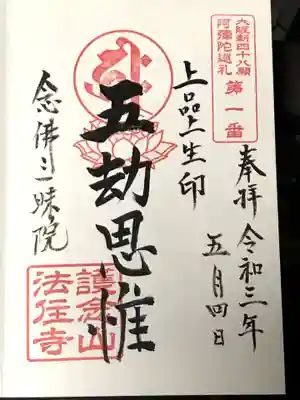 大阪新四十八願
阿弥陀巡礼
第一番
奉拝
令和三年
五月四日
上品上生印
五劫思惟
念佛三昧院
護念山
法住寺